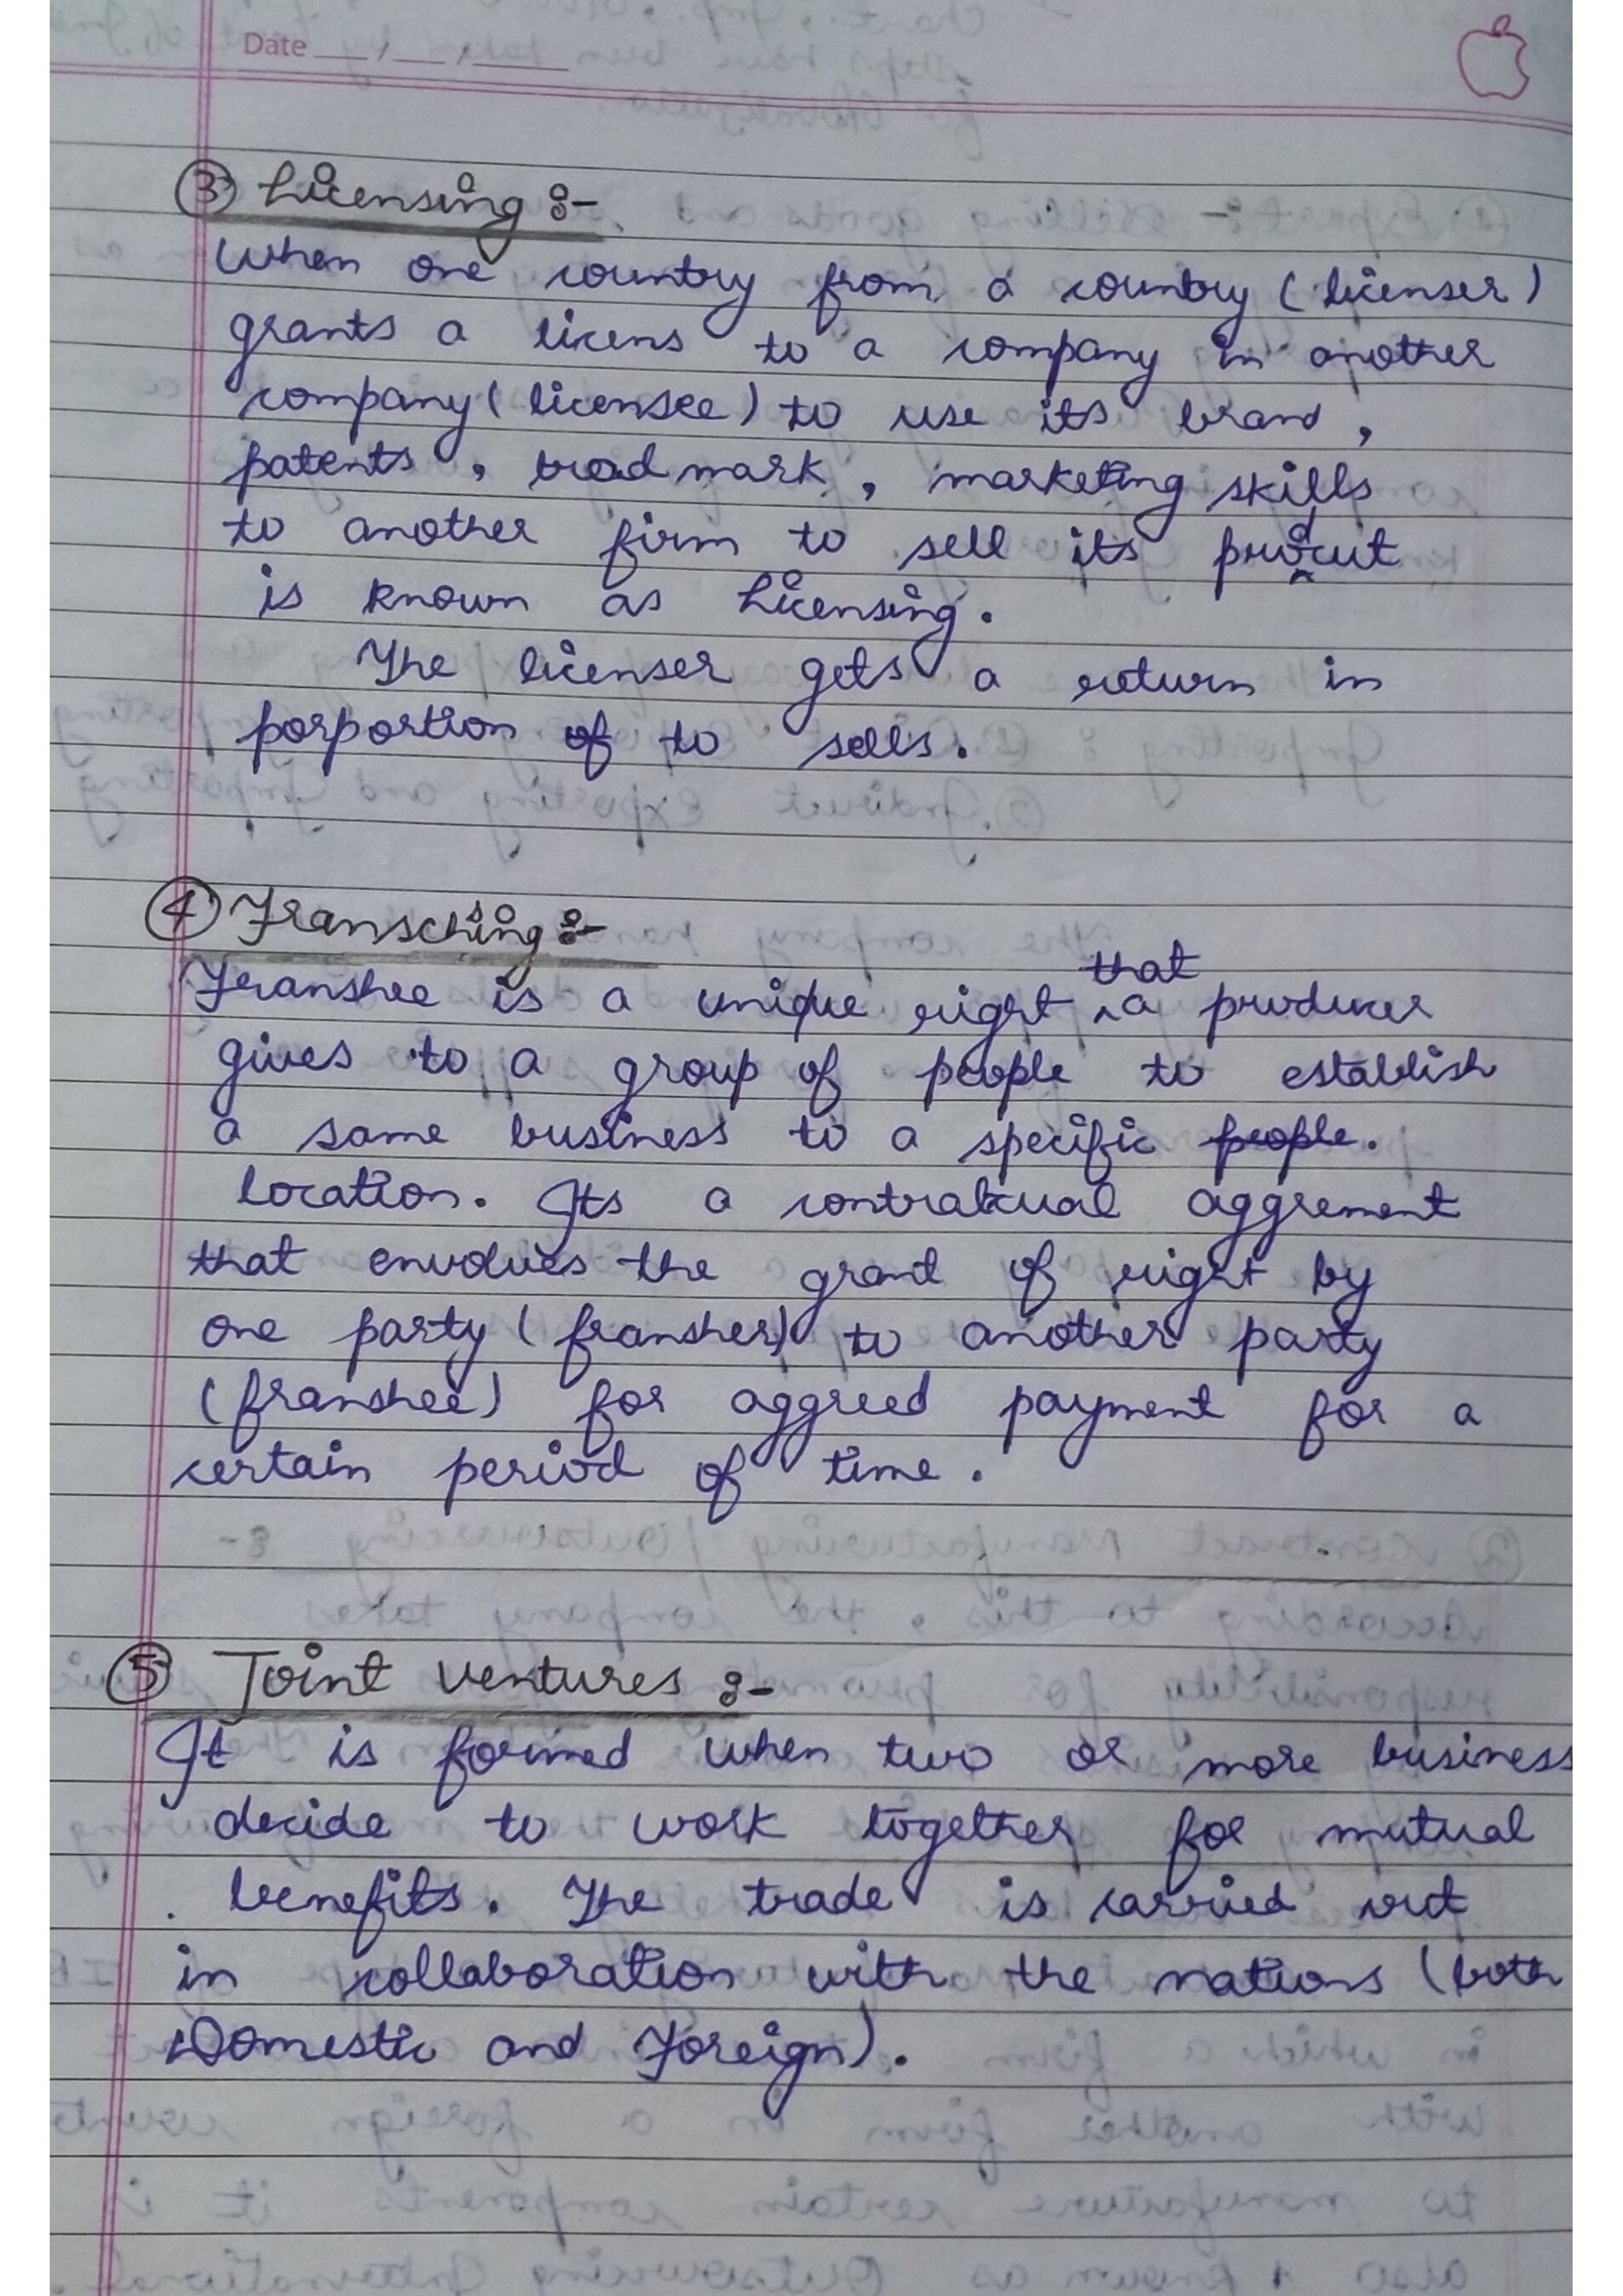 Date __/__/____
③ Licensing :-
When one country from a country (licenser)
grants a licens to a company in another
company (licensee) to use its brand,
patents, tradmark, marketing skills
to another firm to sell its prodcut
is known as Licensing.
The licenser gets a return in
porportion of to sells.
④ Franschising :-
Franshee is a unique right that a producer
gives to a group of people to establish
a same business to a specific people.
location. Its a contratcual aggrement
that envolves the grant of right by
one party (fransher) to another party
(franshee) for aggreed payment for a
certain period of time.
⑤ Joint Ventures :-
It is formed when two or more business
decide to work together for mutual
benefits. The trade is carried out
in collaboration with the nations (both
Domestic and Foreign).